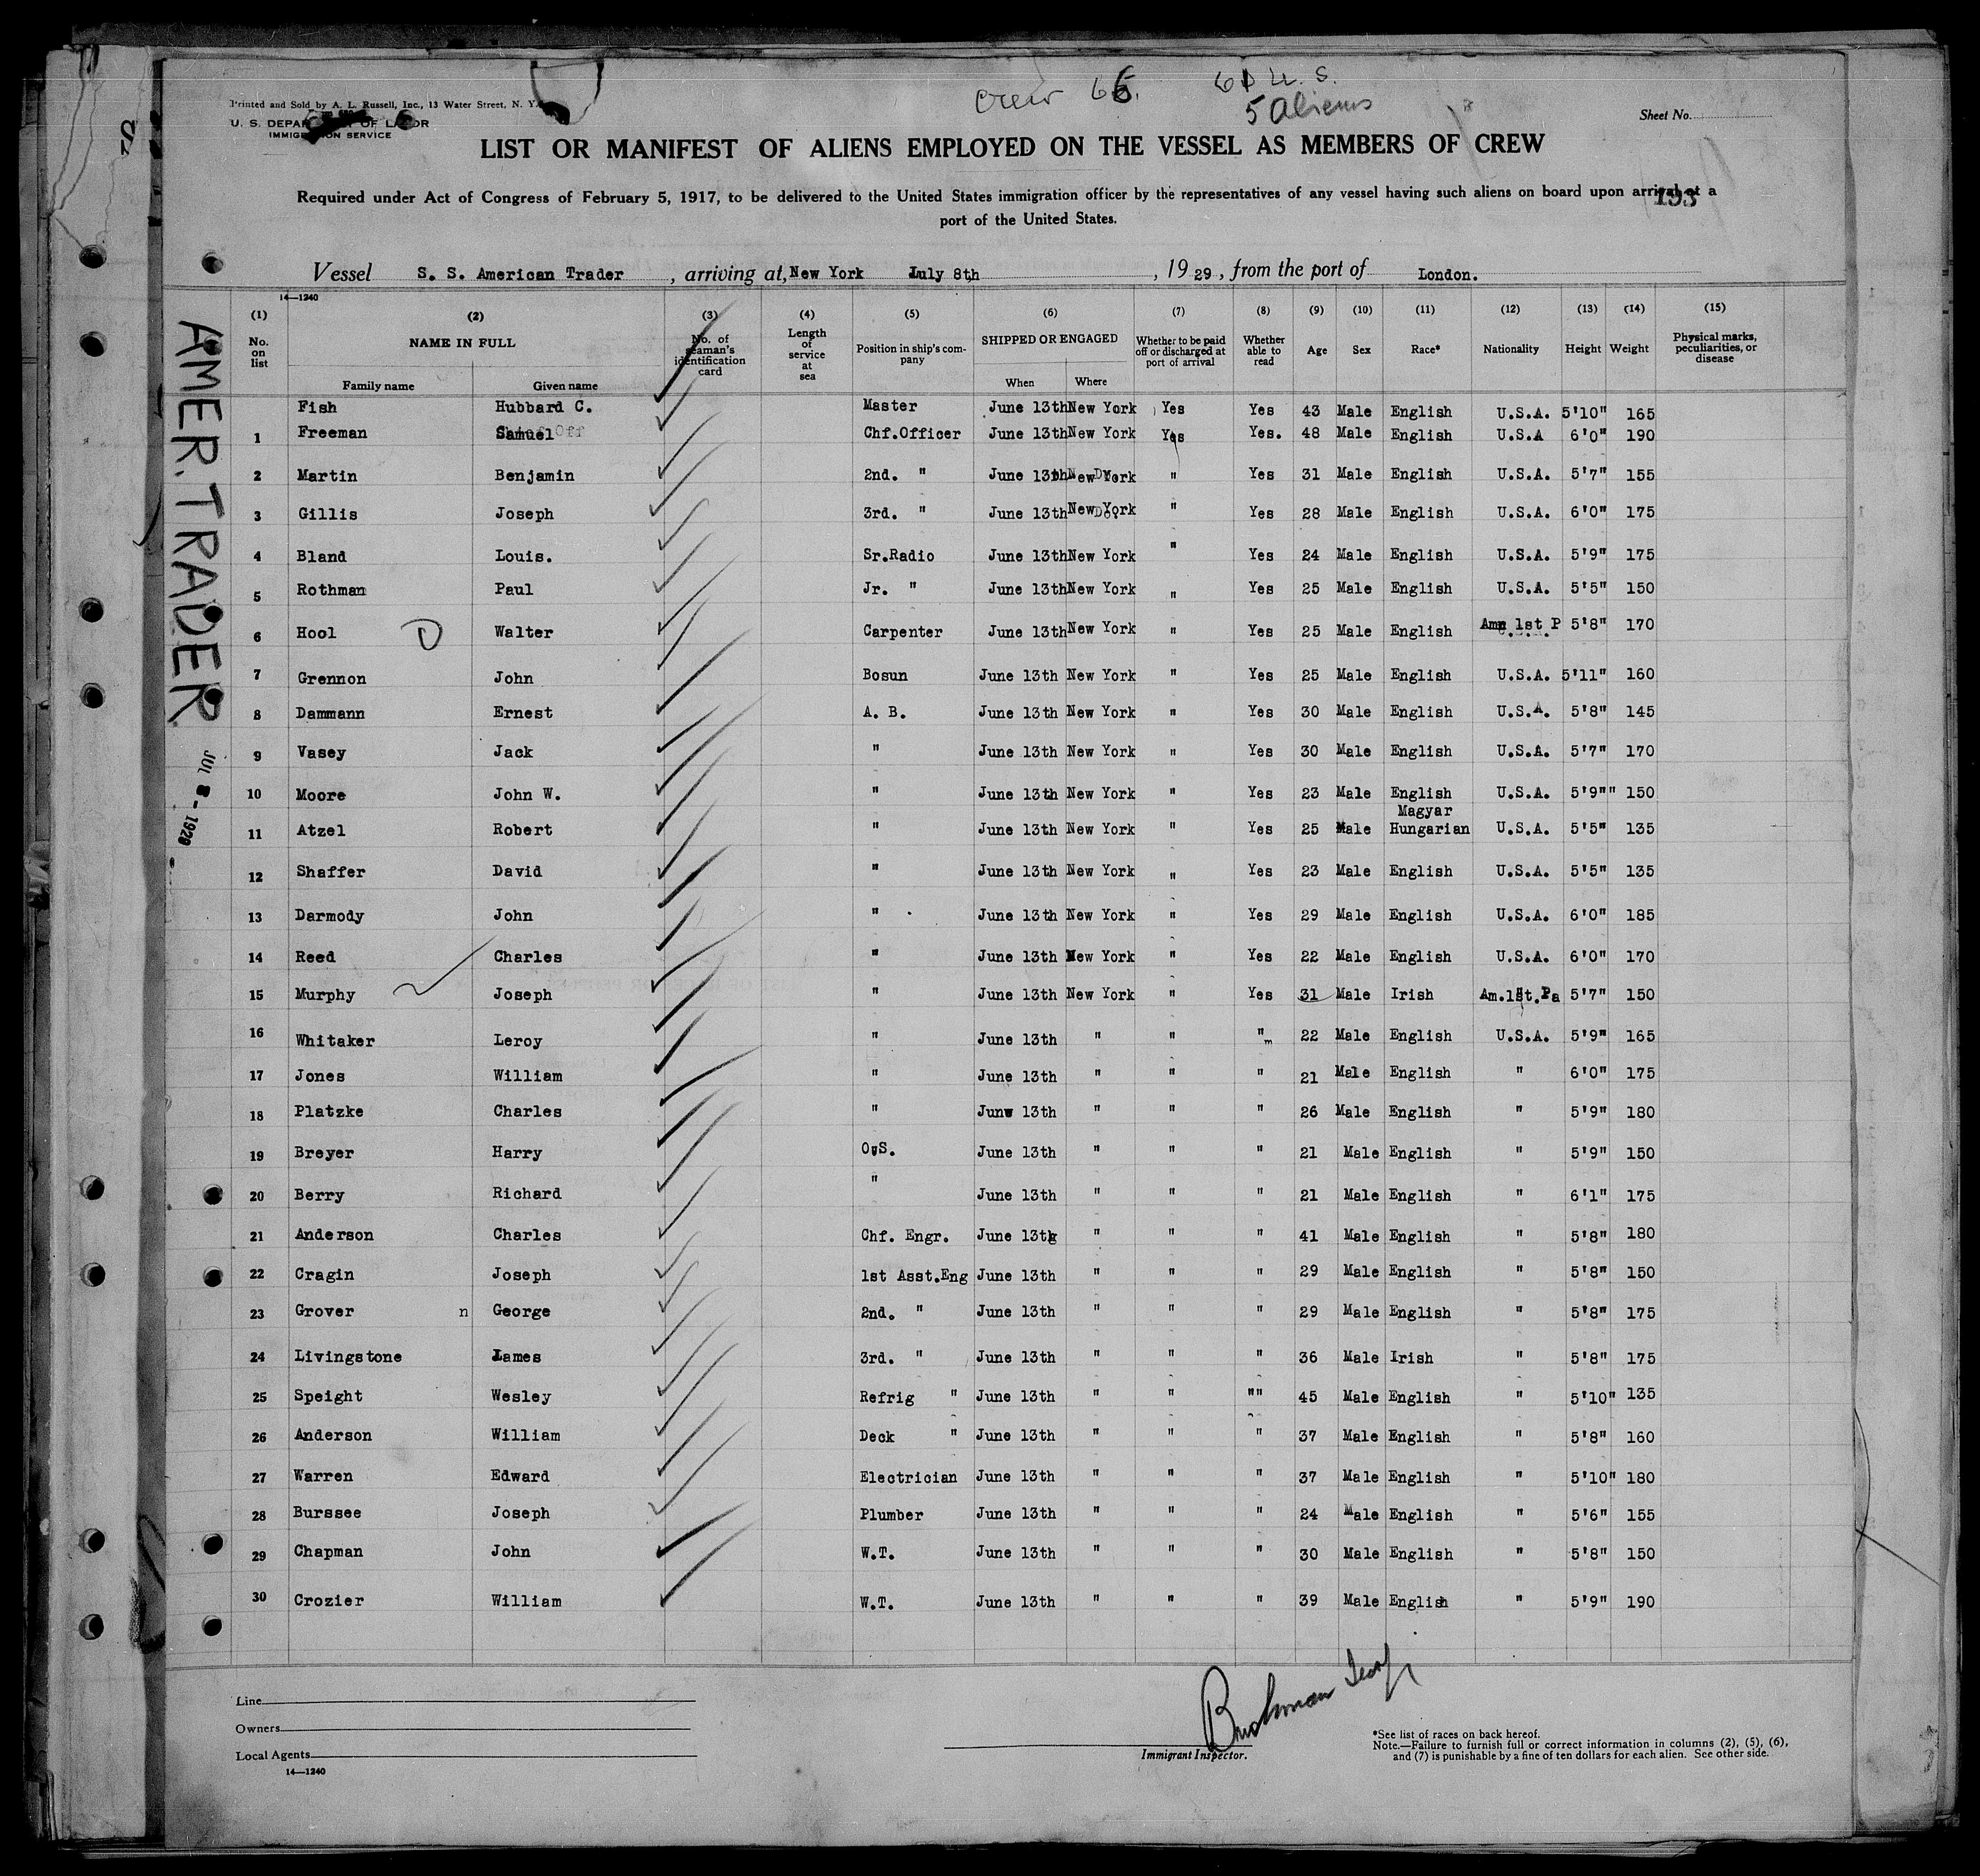 Crew 66. 61 U. S.
5 aliens
Printed and Sold by A. L. Russell, Inc., 13 Water Street, N. Y.
U. S. DEPARTMENT OF LABOR
IMMIGRATION SERVICE
Sheet No.
LIST OR MANIFEST OF ALIENS EMPLOYED ON THE VESSEL AS MEMBERS OF CREW
Required under Act of Congress of February 5, 1917, to be delivered to the United States immigration officer by the representatives of any vessel having such aliens on board upon arrival at a
193
port of the United States.
Vessel S. S. American Trader, arriving at, New York July 8th, 1929, from the port of London.
AMER. TRADER
JUL 8 - 1929
14—1240
(1) (2) (3) (4) (5) (6) (7) (8) (9) (10) (11) (12) (13) (14) (15)
No. on list NAME IN FULL No. of seaman's identification card Length of service at sea Position in ship's company SHIPPED OR ENGAGED Whether to be paid off or discharged at port of arrival Whether able to read Age Sex Race* Nationality Height Weight Physical marks, peculiarities, or disease
Family name Given name When Where
Fish Hubbard C. Master June 13th New York Yes Yes 43 Male English U.S.A. 5'10" 165
1 Freeman Samuel Chf.Officer June 13th New York Yes Yes. 48 Male English U.S.A 6'0" 190
2 Martin Benjamin 2nd. " June 13th New York " Yes 31 Male English U.S.A. 5'7" 155
3 Gillis Joseph 3rd. " June 13th New York " Yes 28 Male English U.S.A. 6'0" 175
4 Bland Louis. Sr.Radio June 13th New York " Yes 24 Male English U.S.A. 5'9" 175
5 Rothman Paul Jr. " June 13th New York " Yes 25 Male English U.S.A. 5'5" 150
6 Hool D Walter Carpenter June 13th New York " Yes 25 Male English Amn 1st P 5'8" 170
7 Grennon John Bosun June 13th New York " Yes 25 Male English U.S.A. 5'11" 160
8 Dammann Ernest A. B. June 13th New York " Yes 30 Male English U.S.A. 5'8" 145
9 Vasey Jack " June 13th New York " Yes 30 Male English U.S.A. 5'7" 170
10 Moore John W. " June 13th New York " Yes 23 Male English U.S.A. 5'9"" 150
11 Atzel Robert " June 13th New York " Yes 25 Male Magyar Hungarian U.S.A. 5'5" 135
12 Shaffer David " June 13th New York " Yes 23 Male English U.S.A. 5'5" 135
13 Darmody John " June 13th New York " Yes 29 Male English U.S.A. 6'0" 185
14 Reed Charles " June 13th New York " Yes 22 Male English U.S.A. 6'0" 170
15 Murphy Joseph " June 13th New York " Yes 31 Male Irish Am.1st.Pa 5'7" 150
16 Whitaker Leroy " June 13th " " " 22 Male English U.S.A. 5'9" 165
17 Jones William " June 13th " " " 21 Male English " 6'0" 175
18 Platzke Charles " Junw 13th " " " 26 Male English " 5'9" 180
19 Breyer Harry O.S. June 13th " " " 21 Male English " 5'9" 150
20 Berry Richard " June 13th " " " 21 Male English " 6'1" 175
21 Anderson Charles Chf. Engr. June 13th " " " 41 Male English " 5'8" 180
22 Cragin Joseph 1st Asst.Eng June 13th " " " 29 Male English " 5'8" 150
23 Grover n George 2nd. " June 13th " " " 29 Male English " 5'8" 175
24 Livingstone James 3rd. " June 13th " " " 36 Male Irish " 5'8" 175
25 Speight Wesley Refrig " June 13th " " "" 45 Male English " 5'10" 135
26 Anderson William Deck " June 13th " " " 37 Male English " 5'8" 160
27 Warren Edward Electrician June 13th " " " 37 Male English " 5'10" 180
28 Burssee Joseph Plumber June 13th " " " 24 Male English " 5'6" 155
29 Chapman John W.T. June 13th " " " 30 Male English " 5'8" 150
30 Crozier William W.T. June 13th " " " 39 Male English " 5'9" 190
Line
Owners
Local Agents
14—1240
Immigrant Inspector.
*See list of races on back hereof.
Note.—Failure to furnish full or correct information in columns (2), (5), (6),
and (7) is punishable by a fine of ten dollars for each alien. See other side.